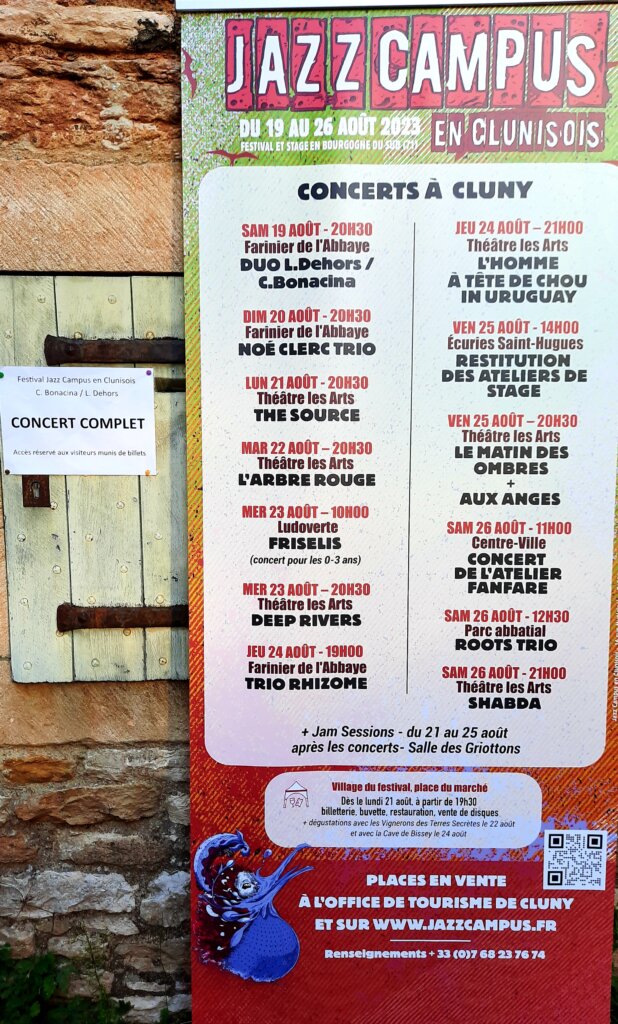 JAZZ CAMPUS
EN CLUNISOIS
DU 19 AU 26 AOÛT 2023
FESTIVAL ET STAGE EN BOURGOGNE DU SUD (71)
CONCERTS À CLUNY
SAM 19 AOÛT - 20H30
Farinier de l'Abbaye
DUO L.Dehors /
C.Bonacina
DIM 20 AOÛT - 20H30
Farinier de l'Abbaye
NOÉ CLERC TRIO
LUN 21 AOÛT - 20H30
Théâtre les Arts
THE SOURCE
MAR 22 AOÛT – 20H30
Théâtre les Arts
L'ARBRE ROUGE
MER 23 AOÛT – 10H00
Ludoverte
FRISELIS
(concert pour les 0-3 ans)
MER 23 AOÛT – 20H30
Théâtre les Arts
DEEP RIVERS
JEU 24 AOÛT - 19H00
Farinier de l'Abbaye
TRIO RHIZOME
JEU 24 AOÛT – 21H00
Théâtre les Arts
L'HOMME
À TÊTE DE CHOU
IN URUGUAY
VEN 25 AOÛT - 14H00
Écuries Saint-Hugues
RESTITUTION
DES ATELIERS DE
STAGE
VEN 25 AOÛT - 20H30
Théâtre les Arts
LE MATIN DES
OMBRES
+
AUX ANGES
SAM 26 AOÛT - 11H00
Centre-Ville
CONCERT
DE L'ATELIER
FANFARE
SAM 26 AOÛT - 12H30
Parc abbatial
ROOTS TRIO
SAM 26 AOÛT - 21H00
Théâtre les Arts
SHABDA
+ Jam Sessions - du 21 au 25 août
après les concerts- Salle des Griottons
Village du festival, place du marché
Dès le lundi 21 août, à partir de 19h30
billetterie, buvette, restauration, vente de disques
+ dégustations avec les Vignerons des Terres Secrètes le 22 août
et avec la Cave de Bissey le 24 août
PLACES EN VENTE
À L'OFFICE DE TOURISME DE CLUNY
ET SUR WWW.JAZZCAMPUS.FR
Renseignements + 33 (0)7 68 23 76 74
Festival Jazz Campus en Clunisois
C. Bonacina / L. Dehors
CONCERT COMPLET
Accès réservé aux visiteurs munis de billets